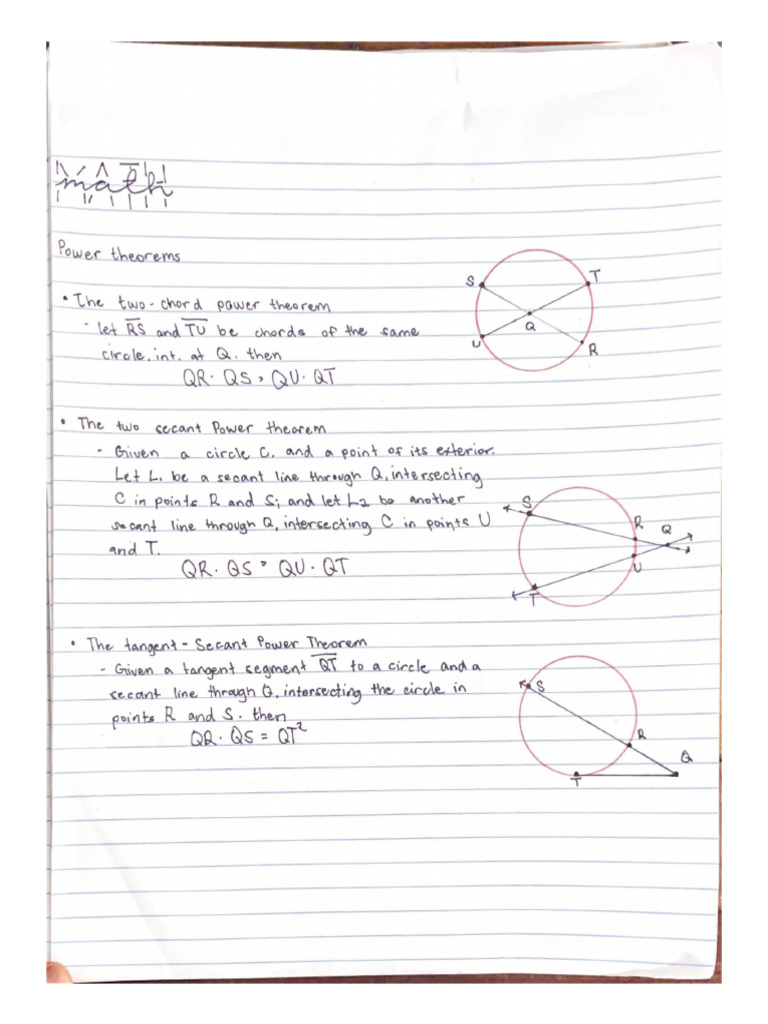 math
Power theorems
• The two-chord power theorem
- let RS and TU be chords of the same
circle, int. at Q. then
QR · QS = QU · QT
S
T
Q
U
R
• The two secant Power theorem
- Given a circle C. and a point of its exterior.
Let L. be a secant line through Q, intersecting
C in points R and S; and let L2 be another
secant line through Q, intersecting C in points U
and T.
QR · QS = QU · QT
S
R
Q
U
T
• The tangent - Secant Power Theorem
- Given a tangent segment QT to a circle and a
secant line through Q, intersecting the circle in
points R and S. then
QR · QS = QT²
S
R
Q
T